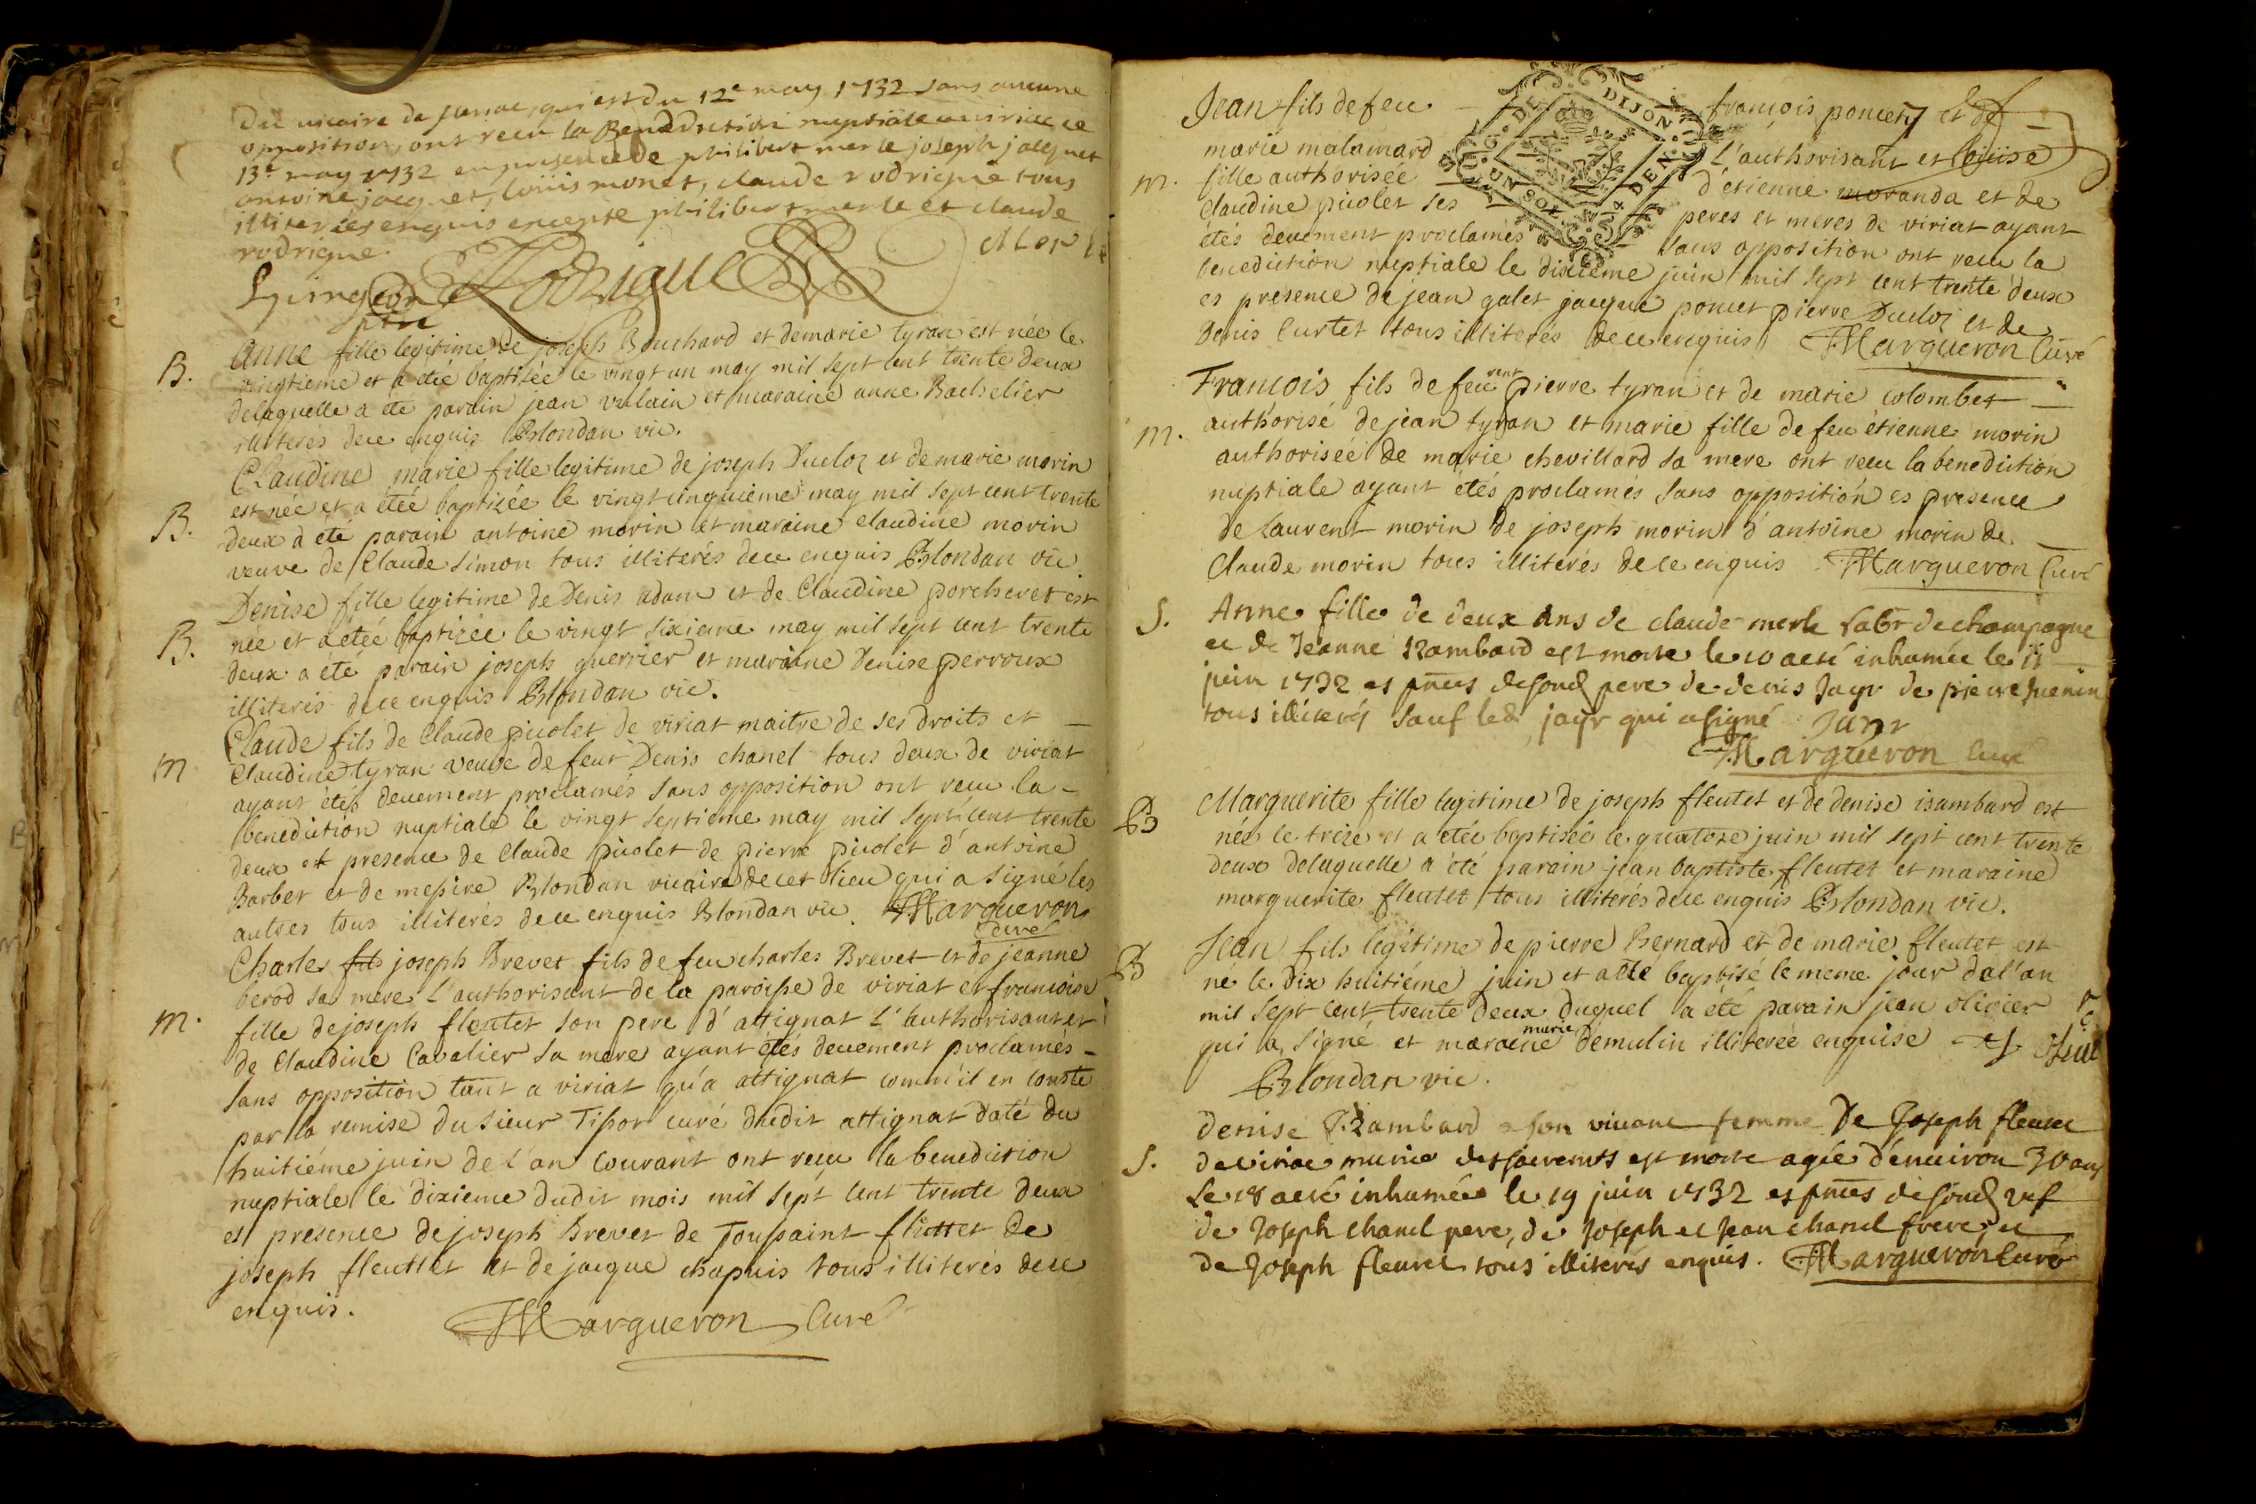 du vicaire de qui est du 12e may 1732 sans aucune
opposition, ont recu la Benediction nuptiale ce
13e may 1732 en presence de philibert merle joseph jacquet
antoine jacquet, loüis monet, claude rodrigue tous
illiterés enquis excepté philibert merle et claude
rodrigue.
Rodrigue
Merle
B.
Anne fille legitime de joseph Bouchard et de marie tyran est née le
vingtieme et a eteé baptisée le vingt un may mil sept cent trente deux
delaquelle a ete parain jean vulain et maraine anne Bachelier
illiterés dece enquis Blondan vic.
Claudine marie fille legitime de joseph Ducloz et de marie morin
est née et a eteé baptizée le vingt cinquieme may mil sept cent trente
B.
deux a eté parain antoine morin et maraine claudine morin
veuve de Claude simon tous illiterés dece enquis Blondan vic
Denise fille legitime de Denis adam et de Claudine porcheret est
B.
née et a eteé baptizée le vingt sixieme may mil sept cent trente
deux a eté parain joseph guerrier et maraine Denise perroux
illiterés dece enquis Blondan vic.
Claude fils de Claude picolet de viriat maitre de ses droits et
m
Claudine tyran veuve de feut Denis chanel tous deux de viriat
ayant étés deuement proclamés sans opposition ont recu la
benediction nuptiale le vingt septieme may mil sept cent trente
deux et presence de Claude picolet de pierre picolet d'antoine
Barbet et de messire Blondan vicaire de cet lieu qui a signé les
autres tous illiterés dece enquis Blondan vic. Margueron
Curé
Charles fils joseph Brevet fils de feu charles Brevet et de jeanne
berod sa mere l'authorisant de la paroisse de viriat et francoise
m.
fille de joseph fleutet son pere d'attignat l'authorisant et
de Claudine Cavalier sa mere ayant étés deuement proclamés
sans opposition tant a viriat qu'a attignat comm'il en conste
par la remise du sieur Tissot curé dudit attignat daté du
huitiéme juin de l'an courant ont recu la benediction
nuptiale le dixieme dudit mois mil sept cent trente deux
es presence de joseph Brevet de Toussaint fluttet de
joseph fleuttet et de jacque chapuis tous illiterés dece
enquis.
Margueron Curé
DIJON
UN SOL 4 DEN
Jean fils de feu francois poncet et de
marie malamard l'authorisant et loüise
m.
fille authorisée d'etienne moranda et de
Claudine picolet ses peres et meres de viriat ayant
étés deuement proclamés sans opposition ont recu la
benediction nuptiale le dixieme juin mil sept cent trente deux
es presence de jean galet jacque poncet pierre Ducloz et de
Denis Curtet tous illiterés dece enquis Margueron Curé
Francois fils de feu pierre tyran et de marie colombet
authorisé de jean tyran et marie fille de feu étienne morin
m.
authoriseé de marie chevillard sa mere ont recu la bénediction
nuptiale ayant étés proclamés sans opposition es presence
de laurent morin de joseph morin d'antoine morin de
Claude morin tous illiterés de ce enquis Margueron Curé
S.
Anne fille de deux ans de claude merle labr de champagne
et de Jeanne Izambard est morte le 10 a eté inhumée le 11
juin 1732 es pnces desond pere de denis Jayr de pierre
tous illiterés sauf led jayr qui a signé Jayr
Margueron Curé
Marguerite fille legitime de joseph fleutet et de denise isambard est
B
née le treze et a eteé baptiseé le quatoze juin mil sept cent trente
deux delaquelle a eté parain jean baptiste fleutet et maraine
marguerite fleutet tous illiterés dece enquis Blondan vic.
Jean fils legitime de pierre Bernard et de marie fleutet est
B
né le dix huitiéme juin et a eté baptisé le meme jour de l'an
mil sept cent trente deux duquel a eté parain jean olivier
qui a signé et maraine marie démulin illitereé enquise
Blondan vic.
denise Izambard a son vivant femme De Joseph fleutet
S.
de viriat munie des sacremts est morte ageé d'enuiron 30 ans
le 18 a eté inhumeé le 19 juin 1732 es pnces desond
de Joseph chanel pere, de Joseph et Jean chanel frere, et
de Joseph fleutet tous illiterés enquis. Margueron Curé